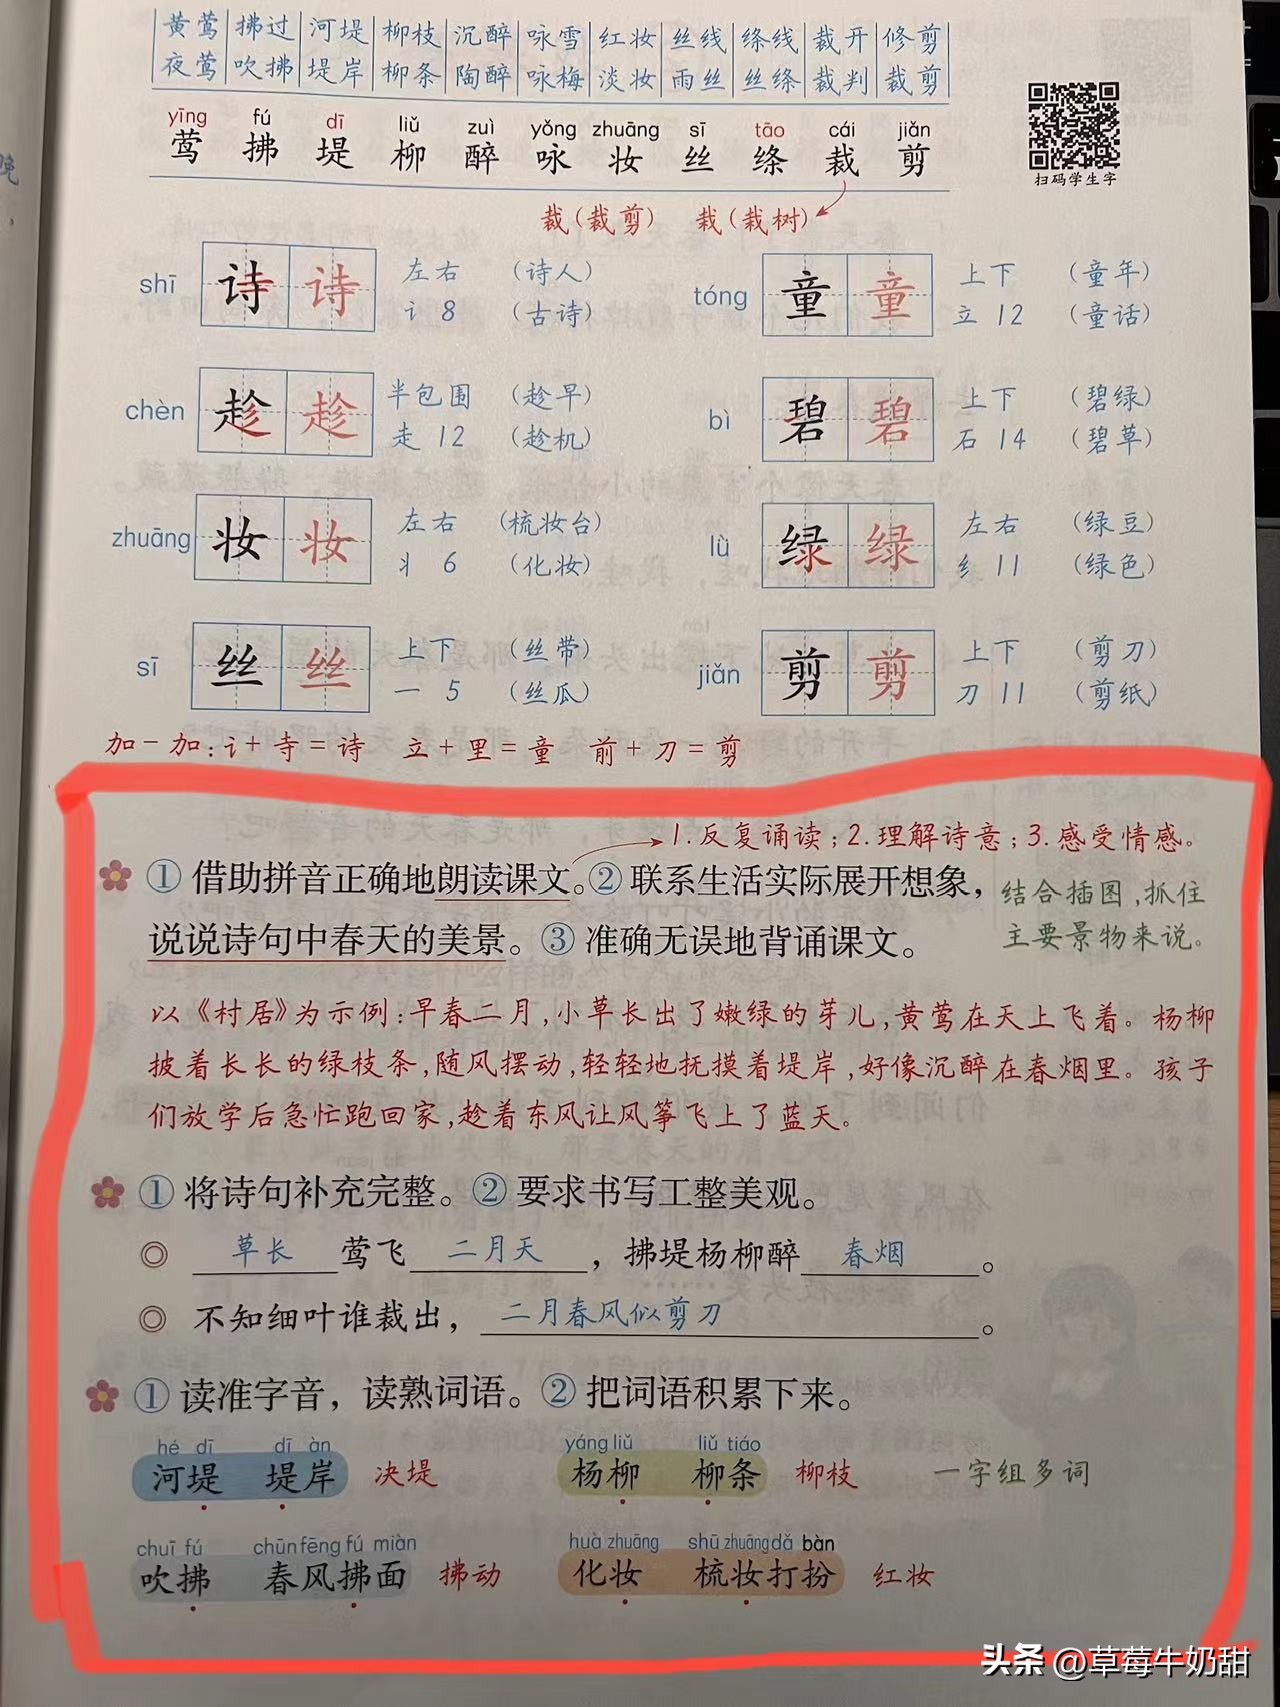 黄莺 拂过 河堤 柳枝 沉醉 咏雪 红妆 丝线 绦线 裁开 修剪
夜莺 吹拂 堤岸 柳条 陶醉 咏梅 淡妆 雨丝 丝绦 裁判 裁剪
yīng fú dī liǔ zuì yǒng zhuāng sī tāo cái jiǎn
莺 拂 堤 柳 醉 咏 妆 丝 绦 裁 剪
扫码学生字
裁(裁剪) 栽(栽树)
shī 诗 诗 左右 (诗人)
讠 8 (古诗)
tóng 童 童 上下 (童年)
立 12 (童话)
chèn 趁 趁 半包围 (趁早)
走 12 (趁机)
bì 碧 碧 上下 (碧绿)
石 14 (碧草)
zhuāng 妆 妆 左右 (梳妆台)
丬 6 (化妆)
lǜ 绿 绿 左右 (绿豆)
纟 11 (绿色)
sī 丝 丝 上下 (丝带)
一 5 (丝瓜)
jiǎn 剪 剪 上下 (剪刀)
刀 11 (剪纸)
加一加：讠+寺=诗 立+里=童 前+刀=剪
1.反复诵读；2.理解诗意；3.感受情感。
①借助拼音正确地朗读课文。②联系生活实际展开想象，
说说诗句中春天的美景。③准确无误地背诵课文。
结合插图，抓住
主要景物来说。
以《村居》为示例：早春二月，小草长出了嫩绿的芽儿，黄莺在天上飞着。杨柳
披着长长的绿枝条，随风摆动，轻轻地抚摸着堤岸，好像沉醉在春烟里。孩子
们放学后急忙跑回家，趁着东风让风筝飞上了蓝天。
①将诗句补充完整。②要求书写工整美观。
◎ 草长莺飞二月天，拂堤杨柳醉春烟。
◎ 不知细叶谁裁出，二月春风似剪刀。
①读准字音，读熟词语。②把词语积累下来。
hé dī dī àn yáng liǔ liǔ tiáo
河堤 堤岸 决堤 杨柳 柳条 柳枝 一字组多词
chuī fú chūn fēng fú miàn huà zhuāng shū zhuāng dǎ bàn
吹拂 春风拂面 拂动 化妆 梳妆打扮 红妆
头条 @草莓牛奶甜